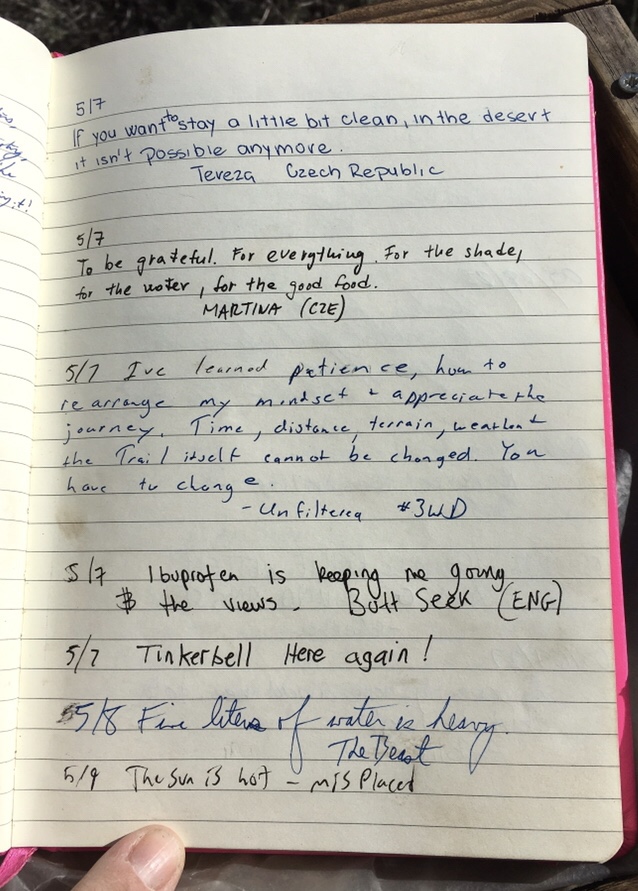 5/7
If you want to stay a little bit clean, in the desert
it isn't possible anymore.
Tereza Czech Republic
5/7
To be grateful. For everything. For the shade,
for the water, for the good food.
MARTINA (CZE)
5/7 Ive learned patience, how to
rearrange my mindset + appreciate the
journey. Time, distance, terrain, weather +
the Trail itself cannot be changed. You
have to change.
- Unfiltered #3WD
5/7 Ibuprofen is keeping me going
& the views. Butt Seek (ENG)
5/7 Tinkerbell Here again!
5/8 Five liters of water is heavy.
The Beast
5/9 The Sun is hot - Miss Placed